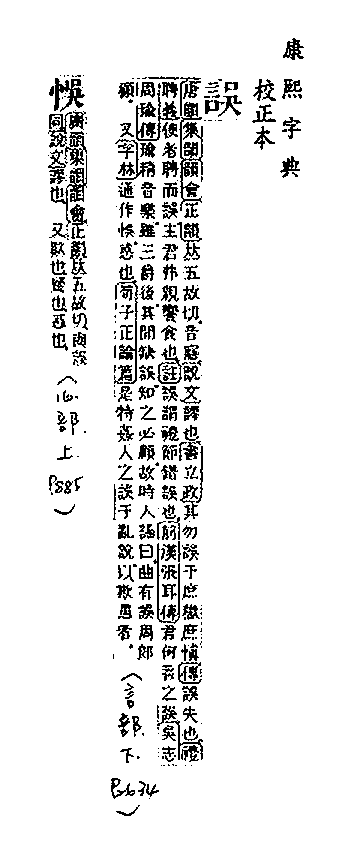 康熙字典
校正本
誤
唐韻集韻韻會正韻𠀤五故切音寤說文謬也書立政其勿誤于庶獄庶愼傳誤失也禮
聘義使者聘而誤主君弗親饗食也註誤謂禮節錯誤也前漢張耳傳君何言之誤吳志
周瑜傳瑜精音樂雖三爵後其間缺誤知之必顧故時人謠曰曲有誤周郞
顧又字林通作悞惑也荀子正論篇是特姦人之誤于亂說以欺愚者
(言部.下. P.634)
悞
廣韻集韻韻會正韻𠀤五故切同誤
同說文謬也又欺也疑也惑也
(心部.上. P.885)